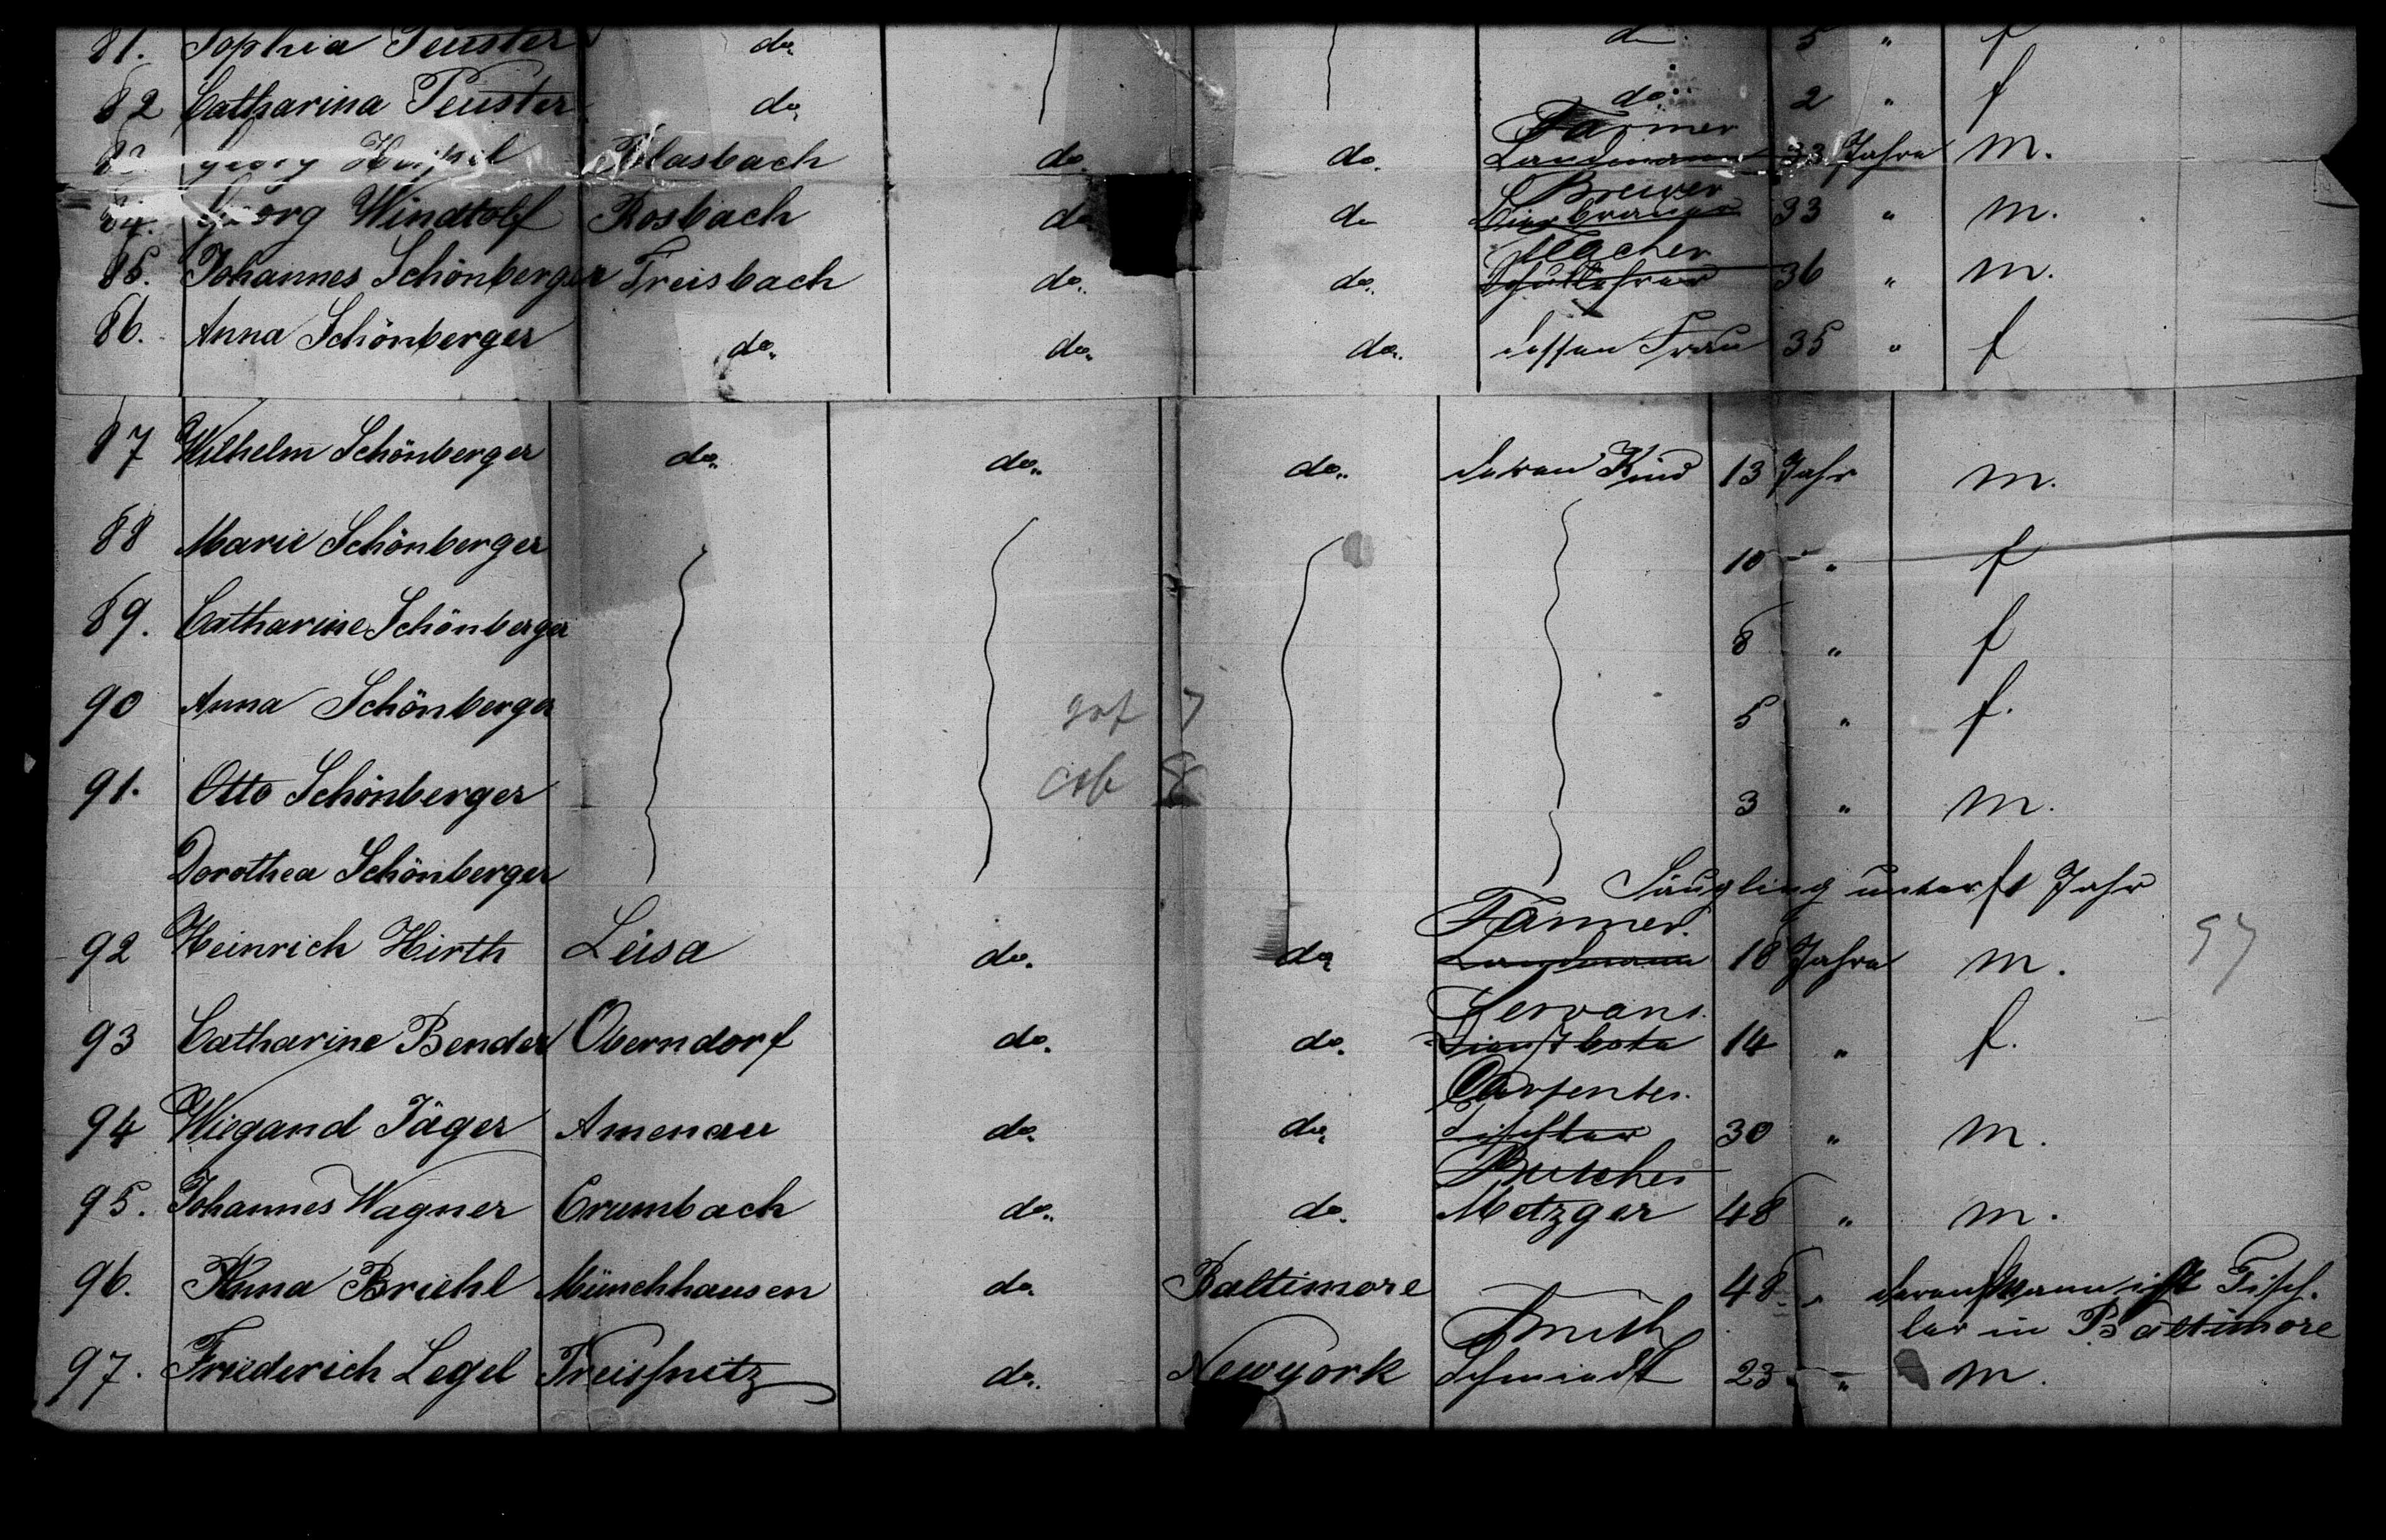 81. Sophia Peuster do. do 5 " f
82 Catharina Peuster do. do. 2 " f
Farmer
83. Georg Blasbach do. do. Landmann 33 Jahre m.
Brewer
84. Georg Windtolf Rosbach do do Bierbrauer 33 " m.
Teacher
85. Johannes Schönberger Treisbach do. do. Schullehrer 36 " m.
86. Anna Schönberger do. do. do. dessen Frau 35 " f
87 Wilhelm Schönberger do. do. do. deren Kind 13 Jahr m.
88 Marie Schönberger 10 " f
89. Catharine Schönberger 8 " f
90 Anna Schönberger 5 " f.
91. Otto Schönberger 3 " m.
Dorothea Schönberger Säugling unter 1 Jahr
Farmer.
92 Heinrich Hirth Leisa do. do. Landmann 18 Jahre m. 97
Servant.
93 Catharine Bender Oberndorf do. do. Dienstbote 14 " f.
Carpenter.
94 Wiegand Jäger Amenau do. do. Tischler 30 " m.
Butcher
95. Johannes Wagner Crumbach do. do. Metzger 48 " m.
96. Anna Briehl Münchhausen do. Baltimore 48 " deren Mann ist Tisch-
ler in Baltimore
Smith
97. Friederich Legel do. Newyork Schmiedt 23 " m.